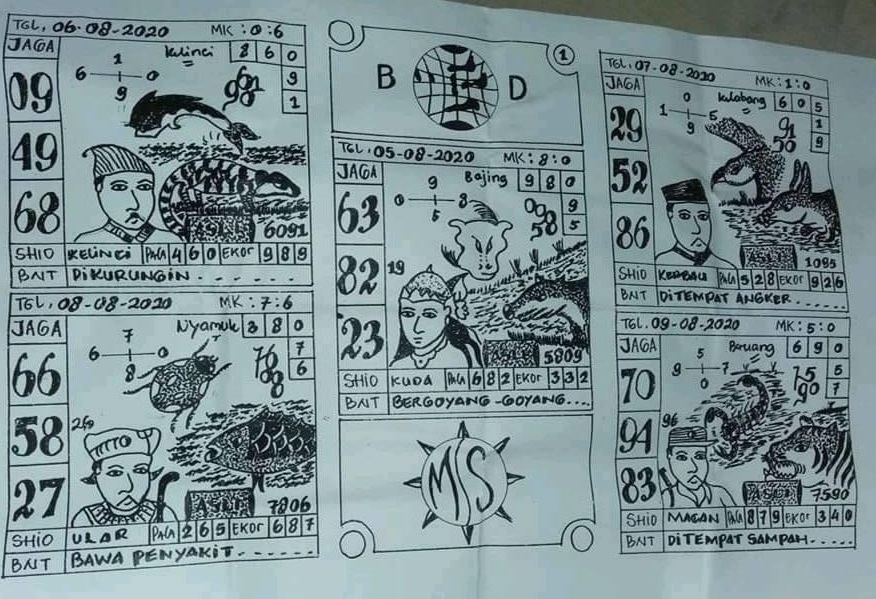 TGL, 06-08-2020 MK : 0 : 6
JAGA
Kelinci 8 6 0
9
1
1
6 0
9
09
49
68
ASLI 6091
SHIO KELINCI PALA 4 6 0 EKOR 9 8 9
BNT DIKURUNGIN - - - -
TGL, 08-08-2020 MK : 7 : 6
JAGA
Nyamuk 3 8 0
7
6
7
6 0
8
66
58
27
ASLI 7806
SHIO ULAR PALA 2 6 5 EKOR 6 8 7
BNT BAWA PENYAKIT - - - - - -
1
B D
TGL, 05-08-2020 MK : 8 : 0
JAGA
Bajing 9 8 0
9
5
9
0 8
5
63
82
23
19
ASLI 5809
SHIO KUDA PALA 6 8 2 EKOR 3 3 2
BNT BERGOYANG-GOYANG....
MS
TGL, 07-08-2020 MK : 1 : 0
JAGA
Kelabang 6 0 5
1
9
0
1 5
9
91
50
29
52
86
ASLI 1095
SHIO KERBAU PALA 5 2 8 EKOR 9 2 6
BNT DITEMPAT ANGKER . . . . . .
TGL, 09-08-2020 MK : 5 : 0
JAGA
Beruang 6 9 0
5
7
5
9 7
0
75
90
70
94
83
96
ASLI 7590
SHIO MACAN PALA 8 7 9 EKOR 3 4 0
BNT DITEMPAT SAMPAH. - - - .